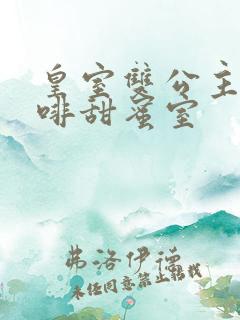 皇室雙公主
啡甜蜜室
弗洛伊德
未經同意禁止轉載